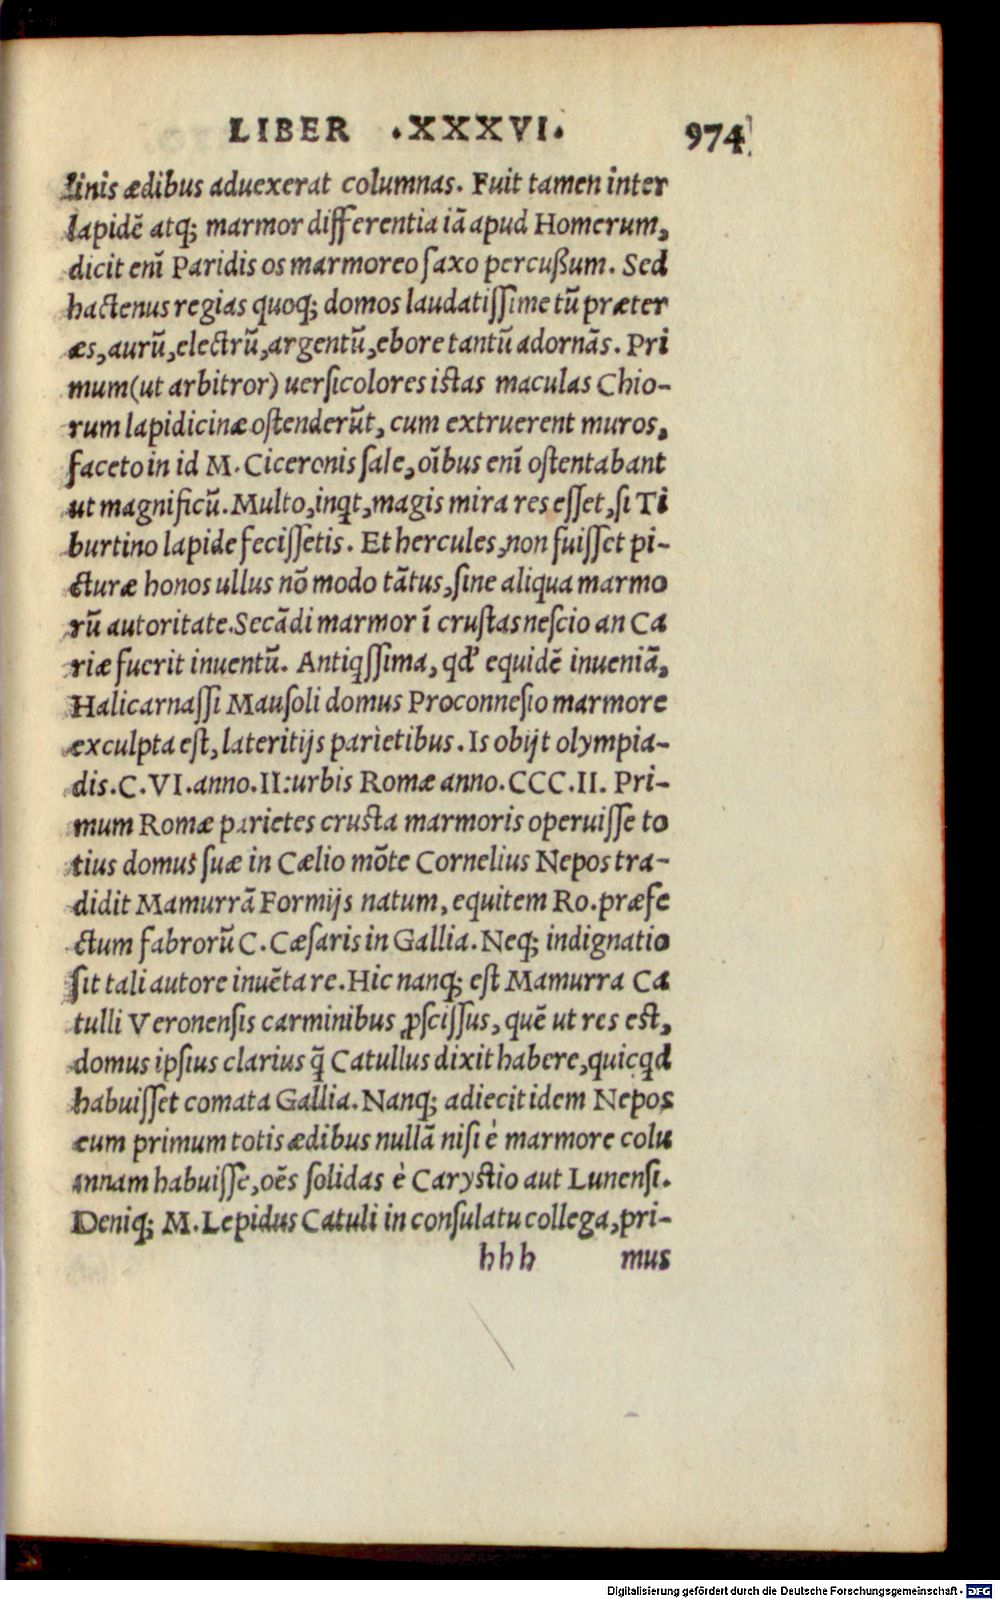 LIBER .XXXVI. 974
linis ædibus aduexerat columnas. Fuit tamen inter
lapidē atq; marmor differentia iā apud Homerum,
dicit enī Paridis os marmoreo ſaxo percußum. Sed
hactenus regias quoq; domos laudatiſſime tū præter
æs, aurū, electrū, argentū, ebore tantū adornās. Pri
mum (ut arbitror) uerſicolores istas maculas Chio-
rum lapidicinæ oſtenderūt, cum extruerent muros,
faceto in id M. Ciceronis ſale, oībus enī oſtentabant
ut magnificū. Multo, inqt, magis mira res eſſet, ſi Ti
burtino lapide feciſſetis. Et hercules, non fuiſſet pi-
cturæ honos ullus nō modo tātus, ſine aliqua marmo
rū autoritate. Secādi marmor ī cruſtas neſcio an Ca
riæ fuerit inuentū. Antiqſſima, qd' equidē inueniā,
Halicarnaſſi Mauſoli domus Proconneſio marmore
exculpta eſt, lateritijs parietibus. Is obijt olympia-
dis. C. VI. anno. II: urbis Romæ anno. CCC. II. Pri-
mum Romæ parietes cruſta marmoris operuiſſe to
tius domus ſuæ in Cælio mōte Cornelius Nepos tra-
didit Mamurrā Formijs natum, equitem Ro. præfe
ctum fabrorū C. Cæſaris in Gallia. Neq; indignatio
ſit tali autore inuēta re. Hic nanq; eſt Mamurra Ca
tulli Veronenſis carminibus ꝓſciſſus, quē ut res eſt,
domus ipſius clarius q̄ Catullus dixit habere, quicqd
habuiſſet comata Gallia. Nanq; adiecit idem Nepos
eum primum totis ædibus nullā niſi è marmore colu
mnam habuiſſe, oēs ſolidas è Caryſtio aut Lunenſi.
Deniq; M. Lepidus Catuli in conſulatu collega, pri-
hhh mus
Digitalisierung gefördert durch die Deutsche Forschungsgemeinschaft - DFG